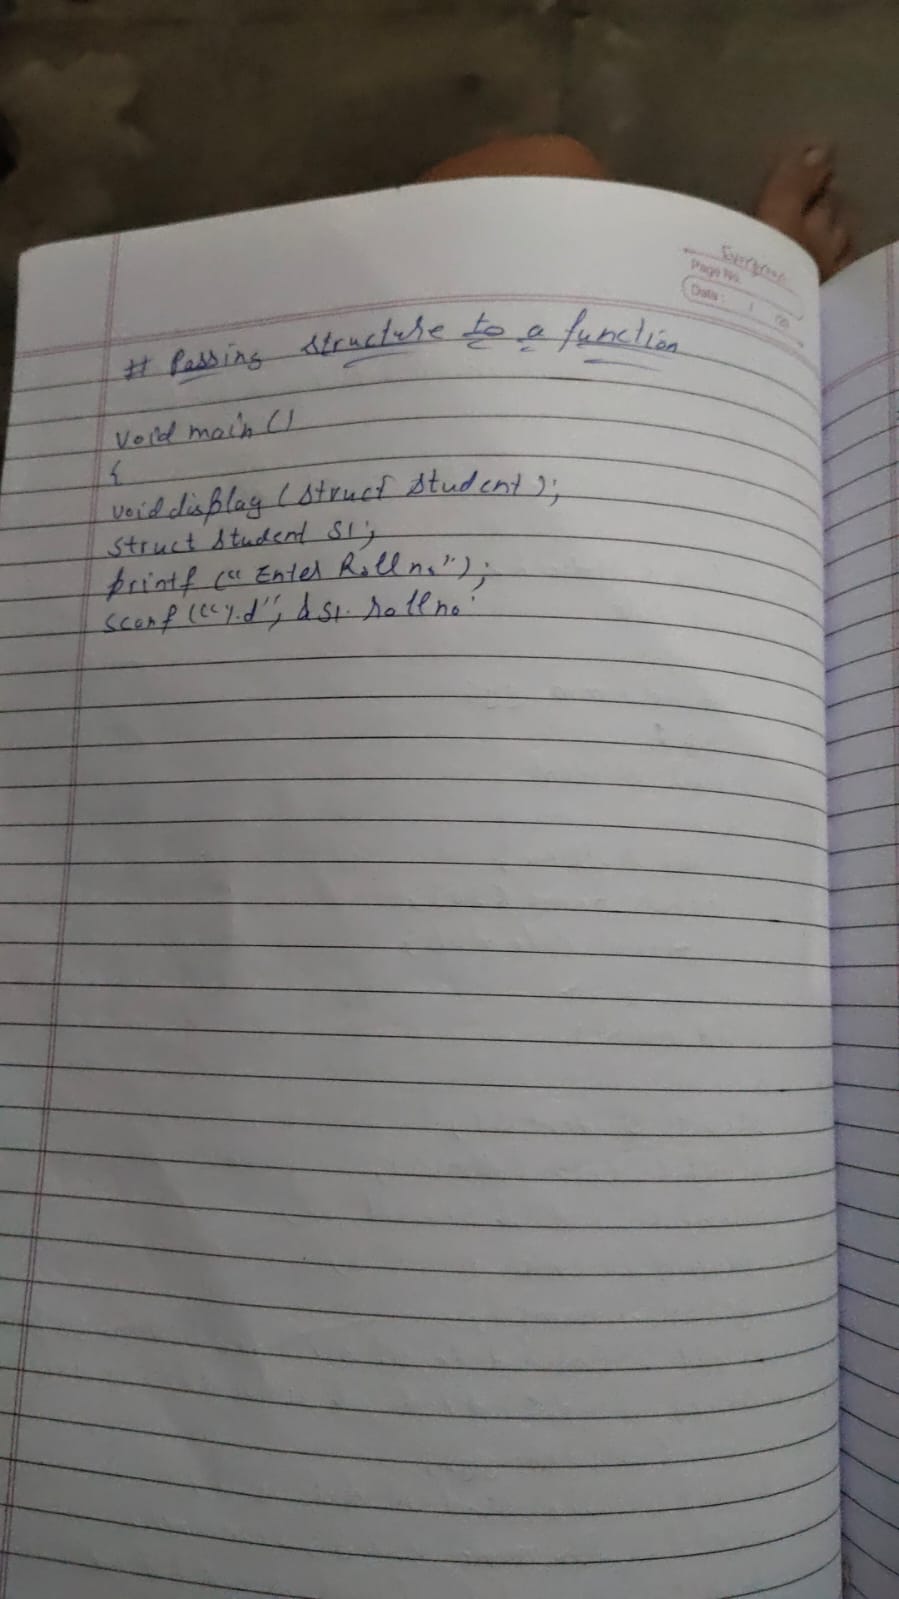 Evergreen
Page No.
Date: / /20
# Passing structure to a function
void main ()
{
void display (struct student);
struct student S1;
printf (“ Enter Roll no”);
scanf (“%d”, &S1. rollno